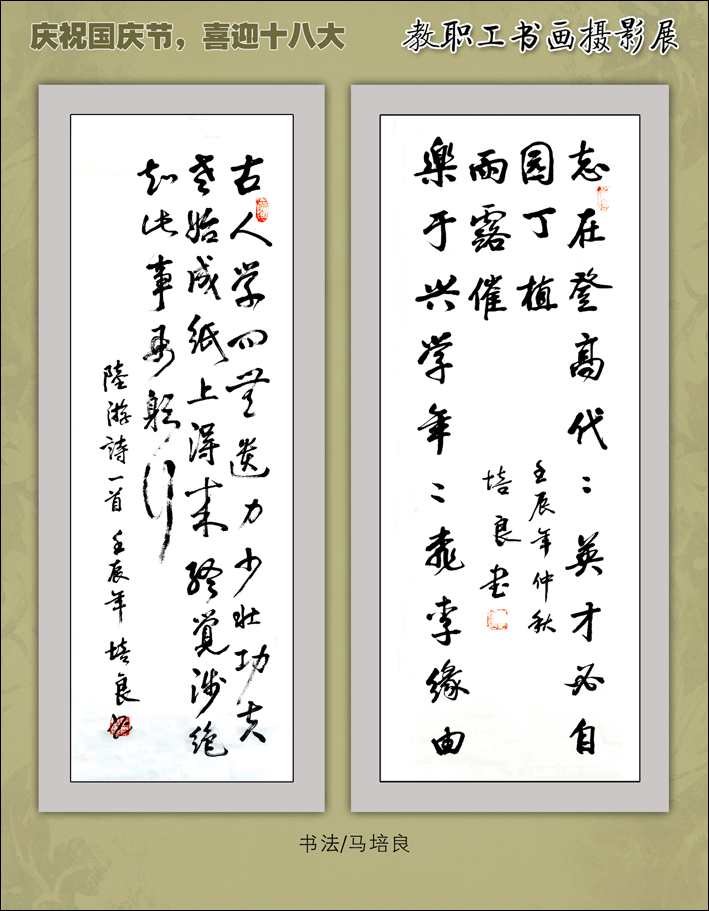 庆祝国庆节，喜迎十八大
教职工书画摄影展
志在登高代:英才必自
园丁植
樂于兴学年:桃李缘由
雨露催
壬辰年仲秋
培良书
古人学问無遗力少壮功夫
老始成纸上得来终觉浅绝
知此事要躬行
陸游詩一首 壬辰年 培良书
书法/马培良